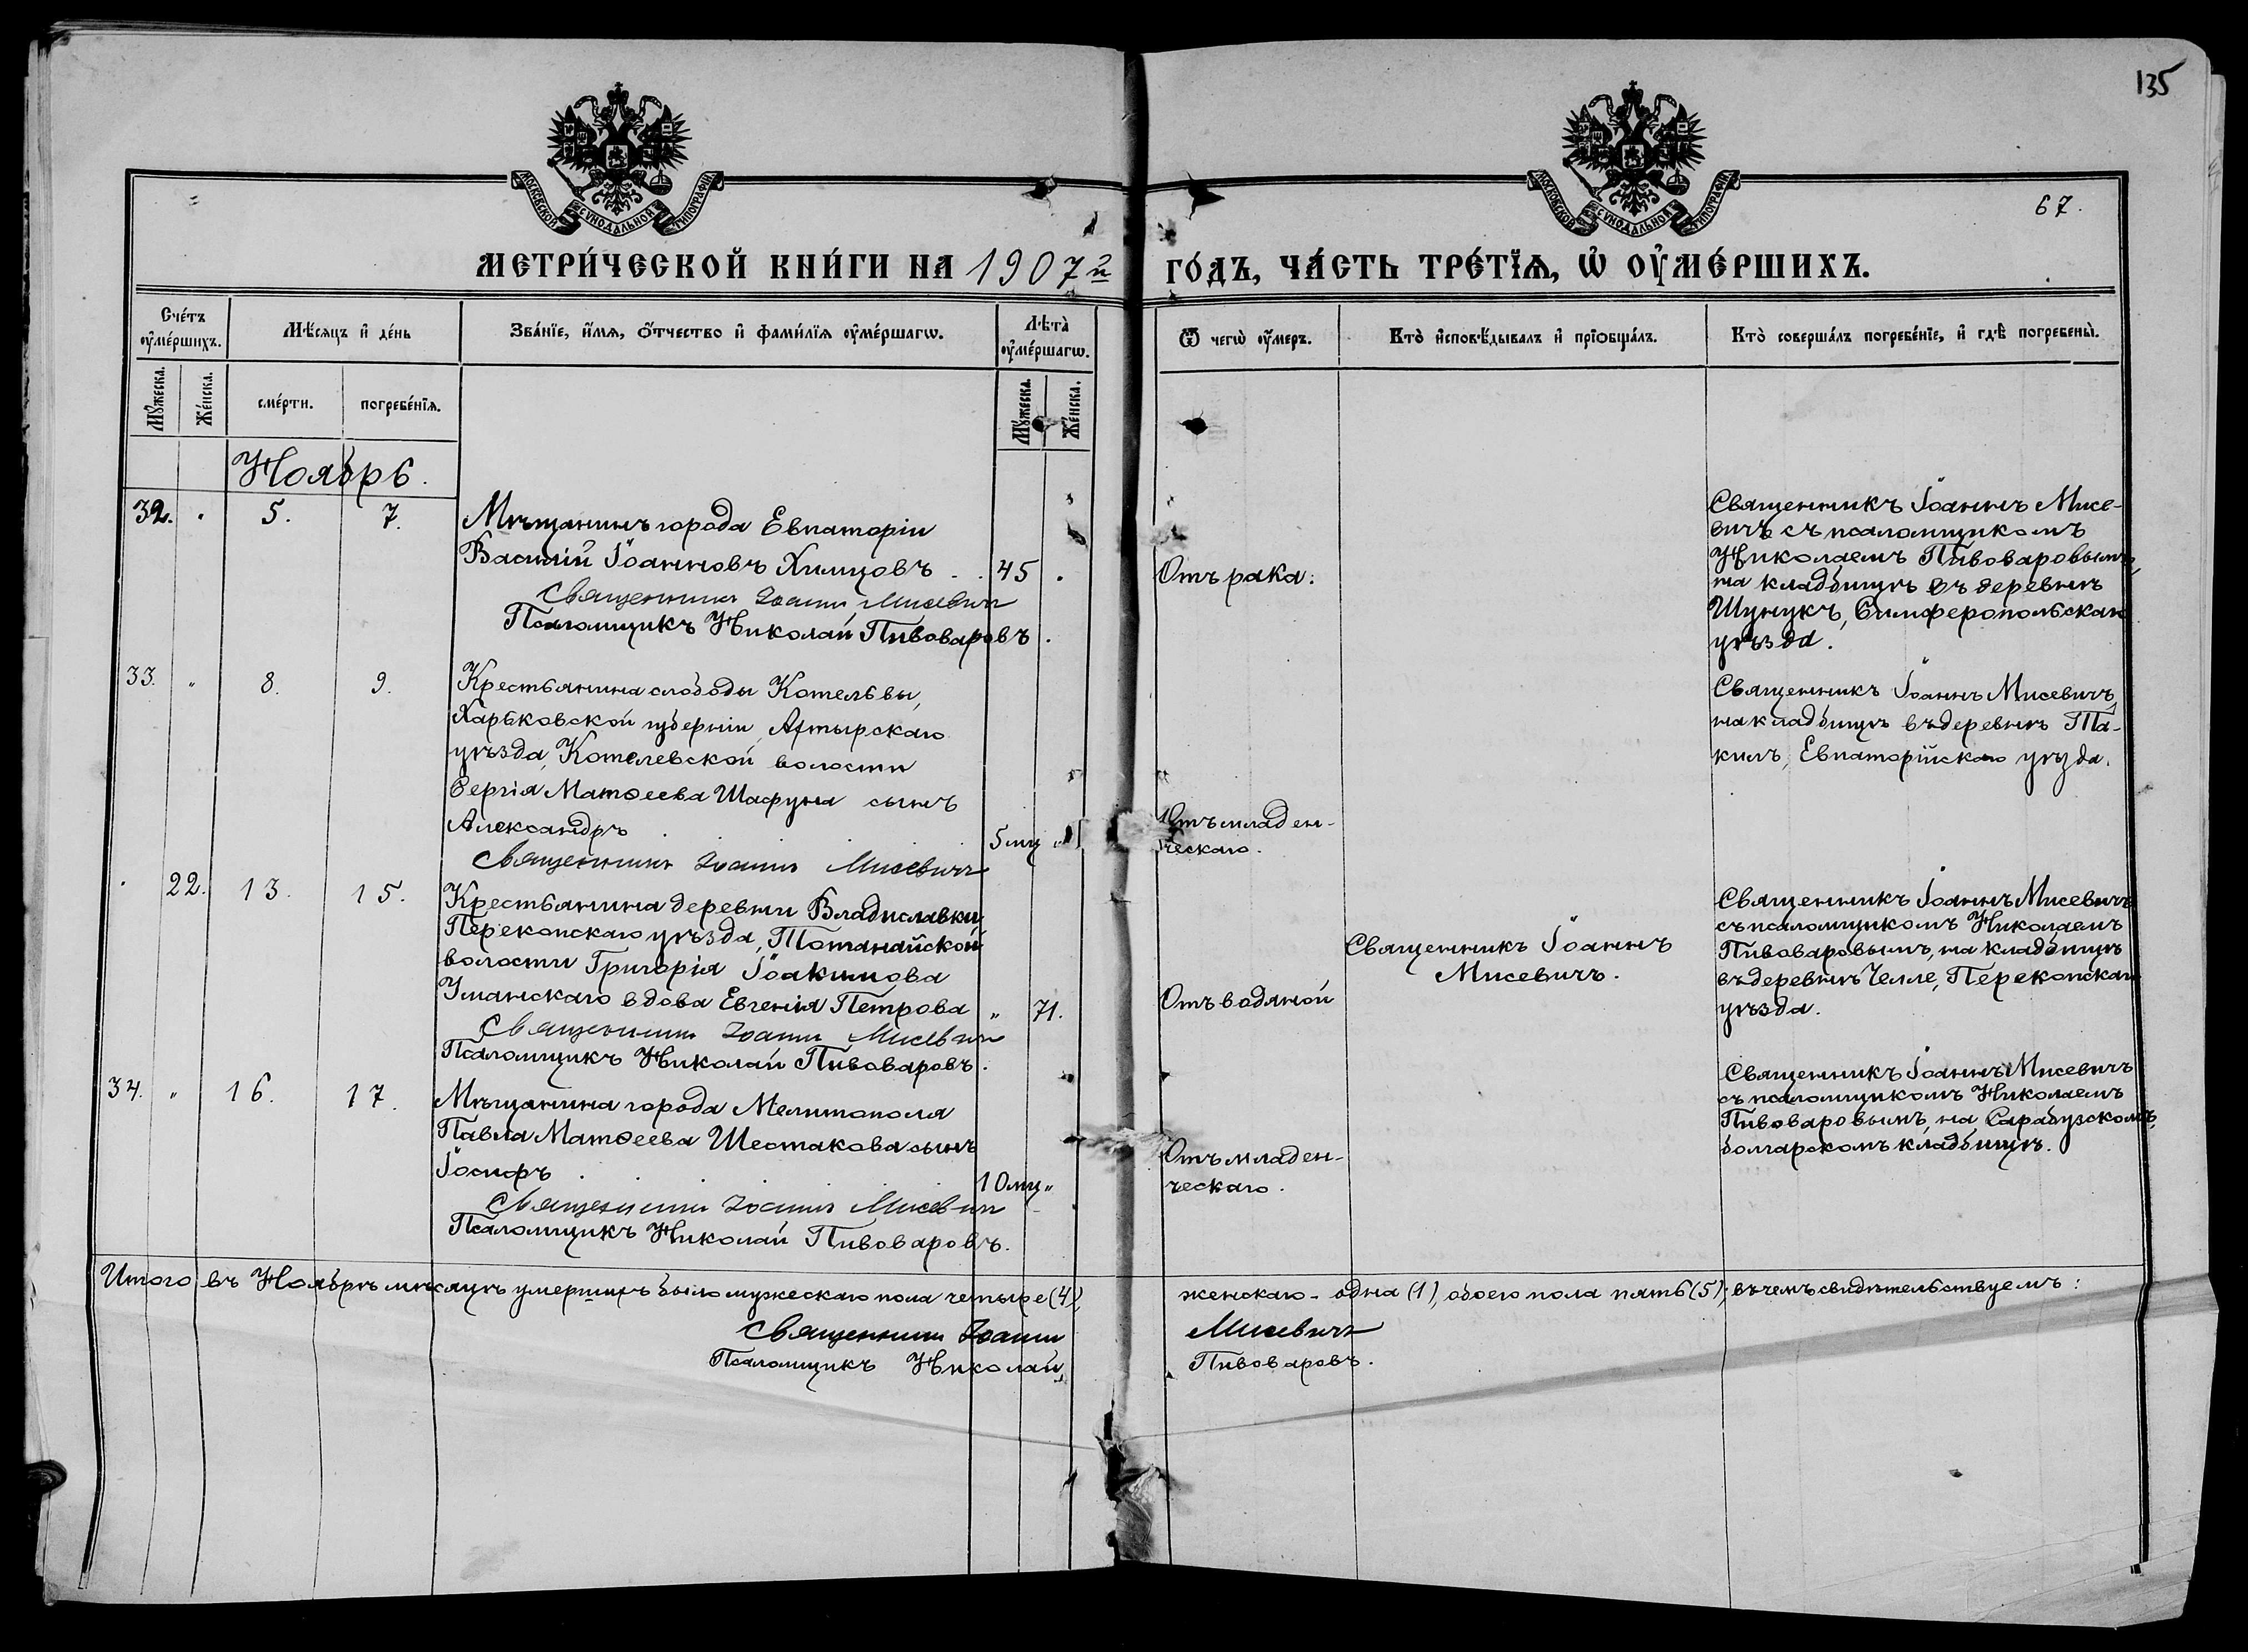 135
67.
МОСКОВСКОЙ СѴНОДАЛЬНОЙ ТИПОГРАФІИ
МОСКОВСКОЙ СѴНОДАЛЬНОЙ ТИПОГРАФІИ
МЕТРИ́ЧЕСКОЙ КНИ́ГИ НА 1907й ГО́ДЪ, ЧА́СТЬ ТРЕ́ТІЯ, Ѡ ОУ҆МЕ́РШИХЪ.
Сче́тъ оу҆ме́ршихъ.
Мѣ́сяцъ и҆ де́нь
Зва́нїе, и҆́мѧ, ѻ҆́тчество и҆ фами́лїѧ оу҆ме́ршагѡ.
Лѣ́та оу҆ме́ршагѡ.
Ѿ чегѡ̀ оу҆́меръ.
Кто̀ и҆сповѣ́дывалъ и҆ прїѻбща́лъ.
Кто̀ соверша́лъ погребе́нїе, и҆ гдѣ̀ погребены̀.
Мꙋ́жеска.
Же́нска.
сме́рти.
погребе́нїѧ.
Мꙋ́жеска.
Же́нска.
Ноябрь.
32. " 5. 7.
Мѣщанинъ города Евпаторіи
Василій Іоанновъ Химцовъ . . 45 .
Священникъ Іоаннъ Мисевичъ
Псаломщикъ Николай Пивоваровъ.
Отъ рака.
Священникъ Іоаннъ Мисе-
вичъ съ псаломщикомъ
Николаемъ Пивоваровымъ,
на кладбищѣ въ деревнѣ
Шунукъ, Симферопольскаго
уѣзда.
33. " 8. 9.
Крестьянина слободы Котельвы,
Харьковской губерніи, Ахтырскаго
уѣзда, Котелевской волости
Сергія Матѳеева Шафуна сынъ
Александръ 5 мц. "
Священникъ Іоаннъ Мисевичъ
Отъ младен-
ческаго.
Священникъ Іоаннъ Мисевичъ,
на кладбищѣ въ деревнѣ Та-
килъ, Евпаторійскаго уѣзда.
. 22. 13. 15.
Крестьянина деревни Владиславки
Перекопскаго уѣзда, Тотанайской
волости Григорія Іоакимова
Уманскаго вдова Евгенія Петрова " 71.
Священникъ Іоаннъ Мисевичъ
Псаломщикъ Николай Пивоваровъ.
Отъ водяной
Священникъ Іоаннъ
Мисевичъ.
Священникъ Іоаннъ Мисевичъ
съ псаломщикомъ Николаемъ
Пивоваровымъ, на кладбищѣ
въ деревнѣ Челле, Перекопскаго
уѣзда.
34. " 16. 17.
Мѣщанина города Мелитополя
Павла Матѳеева Шестакова сынъ
Іосифъ 10 мц. "
Священникъ Іоаннъ Мисевичъ
Псаломщикъ Николай Пивоваровъ.
Отъ младен-
ческаго.
Священникъ Іоаннъ Мисевичъ
съ псаломщикомъ Николаемъ
Пивоваровымъ, на Сарабузскомъ,
болгарскомъ кладбищѣ.
Итого въ Ноябрѣ мѣсяцѣ умершихъ было мужескаго пола четыре (4), женскаго - одна (1), обоего пола пять (5); въ чемъ свидѣтельствуемъ:
Священникъ Іоаннъ Мисевичъ
Псаломщикъ Николай Пивоваровъ.